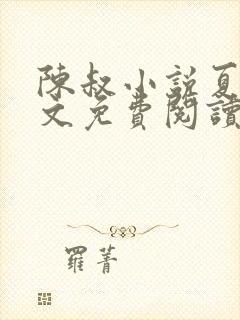 陳叔小說夏
文免費閱讀
羅菁